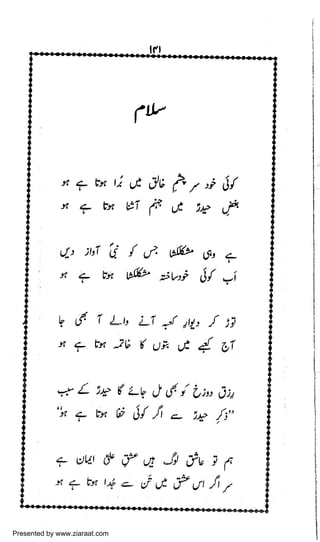 ۱۳۱
سلام
کوئی خود سر چشمِ خالق میں بُرا ہوتا ہے ہو
بغضِ حیدرؑ میں جہنم آشنا ہوتا ہے ہو
ہے وہی مشکلکشا جس کو نبیؐ آواز دیں
اَب کوئی خودساختہ مشکلکشا ہوتا ہے ہو
توڑ کر دیوارِ کعبہ آنے والے آ بھی جا
آج کعبے میں بتوں کا خاتمہ ہوتا ہے ہو
رزق دوزخ کو بھی مل جائے گا حیدرؑ کے سبب
”ذکرِ حیدرؑ سے اگر کوئی خفا ہوتا ہے ہو“
ہم تو عاشق لوگ ہیں عشقِ علیؑ ایمان ہے
سر اگر اس عشق میں تن سے جُدا ہوتا ہے ہو
Presented by www.ziaraat.com